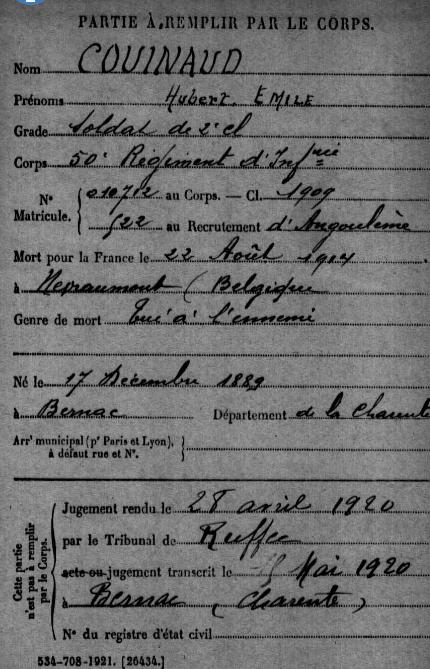 PARTIE À REMPLIR PAR LE CORPS.
Nom COUINAUD
Prénoms Hubert. EMILE
Grade Soldat de 2e cl
Corps 50e Régiment d'Infrie
N° Matricule. { 010712 au Corps. — Cl. 1909
522 au Recrutement d'Angoulème
Mort pour la France le 22 Août 1914
à (Belgique
Genre de mort Tué à l'ennemi
Né le 17 Décembre 1889
à Bernac Département de la Charente
Arrt municipal (pr Paris et Lyon), à défaut rue et N°. }
Cette partie n'est pas à remplir par le Corps.
Jugement rendu le 28 avril 1920
par le Tribunal de Ruffec
acte ou jugement transcrit le Mai 1920
à Bernac (Charente)
N° du registre d'état civil
534-708-1921. [26434.]